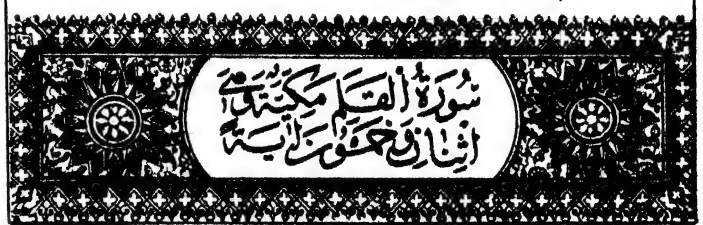 سُورَةُ الْقَلَمِ مَكِّيَّةٌ وَهِيَ
اثْنَانِ وَخَمْسُونَ آيَةً